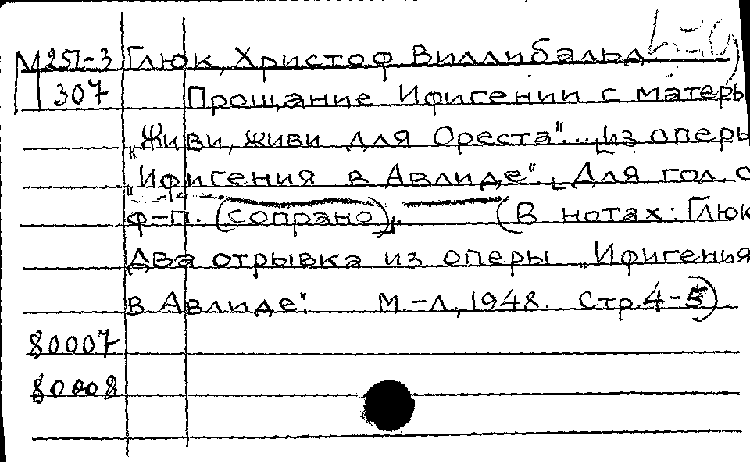 М251-3 Глюк, Христоф Виллибальд
307 Прощание Ифигении с матерь
„Живи, живи для Ореста"... [из оперы
„Ифигения в Авлиде". [Для гол. с
ф-п. (сопрано). (В нотах: Глюк
Два отрывка из оперы „Ифигения
в Авлиде". М.-Л., 1948. Стр. 4-5)
80007
80008